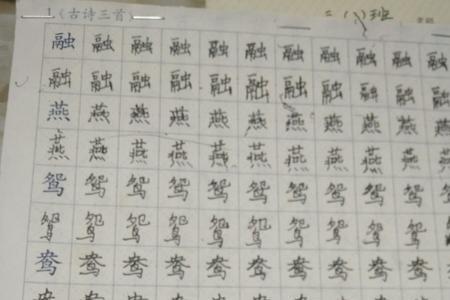 1《古诗三首》 班
融融融融融融融融融融融
融融融融融融融融融融融
燕燕燕燕燕燕燕燕燕燕燕
燕燕燕燕燕燕燕燕燕燕燕
鸳鸳鸳鸳鸳鸳鸳鸳鸳鸳鸳
鸳鸳鸳鸳鸳鸳鸳鸳鸳鸳鸳
鸯鸯鸯鸯鸯鸯鸯鸯鸯鸯鸯